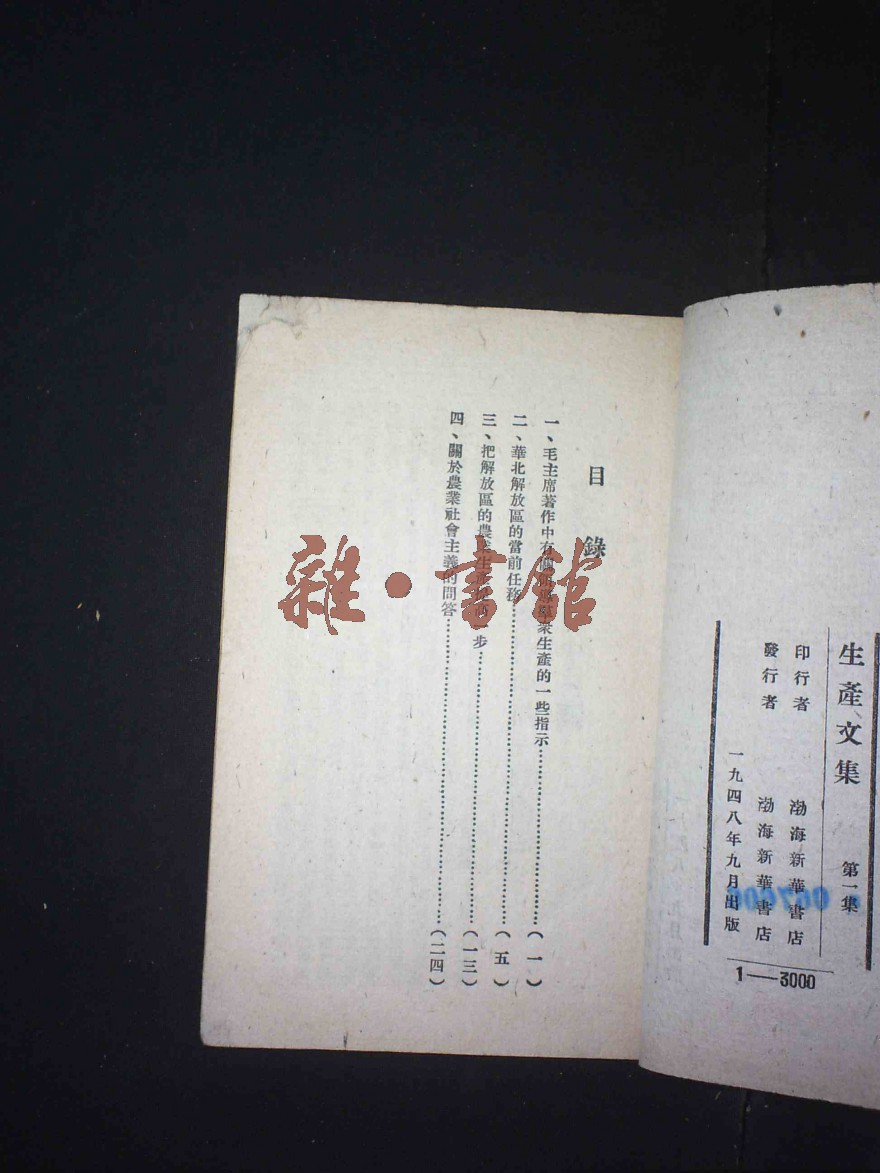 生產文集 第一集
印行者 渤海新華書店
發行者 渤海新華書店
一九四八年九月出版
1—3000
目錄
一、毛主席著作中有關衆生產的一些指示……(一)
二、華北解放區的當前任務……(五)
三、把解放區的農業生產提高一步……(一三)
四、關於農業社會主義的問答……(二四)
雜·書館